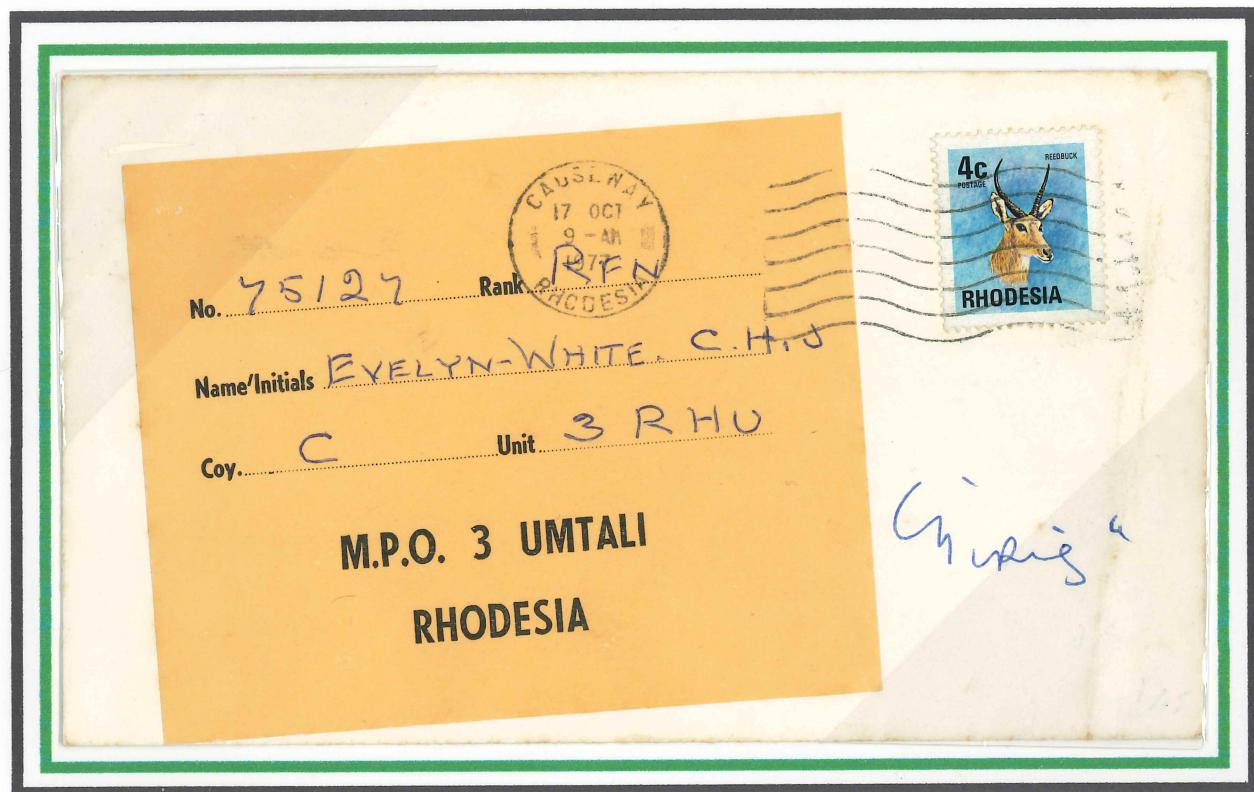 CAUSEWAY
17 OCT
9 - AM
1977
RHODESIA
4c
POSTAGE
REEDBUCK
RHODESIA
No. 75127 Rank RFN
Name/Initials EVELYN-WHITE. C.H.J
Coy. C Unit 3 RHU
M.P.O. 3 UMTALI
RHODESIA